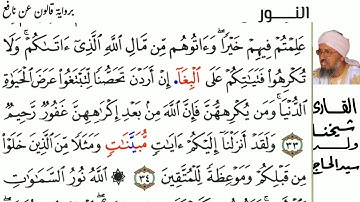 النور
برواية قالون عن نافع
عَلِمْتُمْ فِيهِمْ خَيْرًا وَءَاتُوهُم مِّن مَّالِ اللَّهِ الَّذِي ءَاتَىٰكُمْ وَلَا
تُكْرِهُوا فَتَيَٰتِكُمْ عَلَى الْبِغَآءِ انْ أَرَدْنَ تَحَصُّنًا لِّتَبْتَغُوا عَرَضَ الْحَيَوٰةِ
الدُّنْيَا وَمَن يُكْرِههُّنَّ فَإِنَّ اللَّهَ مِن بَعْدِ إِكْرَٰهِهِنَّ غَفُورٌ رَّحِيمٌ
٣٣ وَلَقَدْ أَنزَلْنَا إِلَيْكُمْ ءَايَٰتٍ مُّبَيَّنَٰتٍ وَمَثَلًا مِّنَ الَّذِينَ خَلَوْا
مِن قَبْلِكُمْ وَمَوْعِظَةً لِّلْمُتَّقِينَ ٣٤ ۞ اللَّهُ نُورُ السَّمَٰوَٰتِ
القارئ
شيخنا
ولد
سيد الحاج